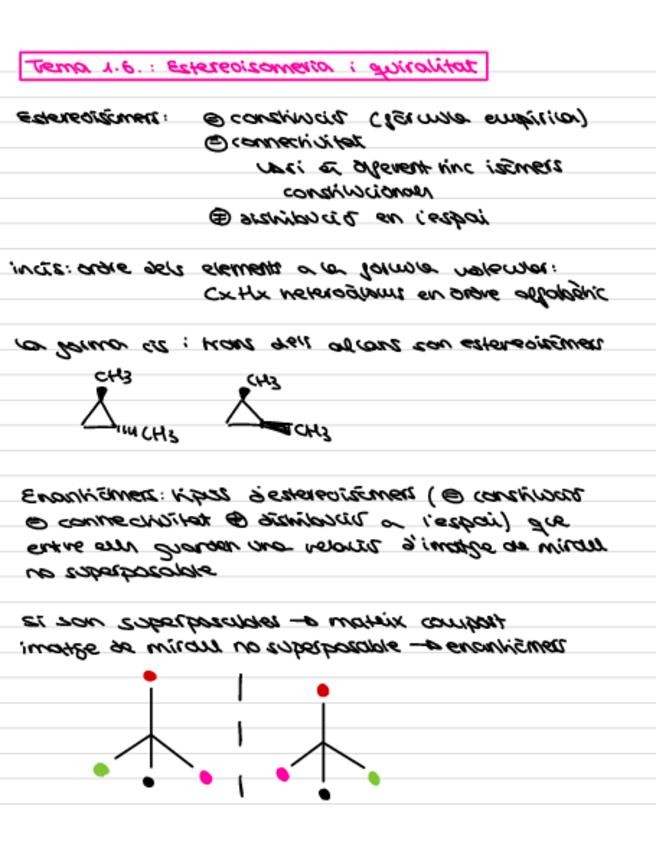 Tema 1.6.: Estereoisomeria i quiralitat
Estereoisòmers: = constitució (fórmula empírica)
= connectivitat
Així si diferent tinc isòmers
constitucionals
≠ distribució en l'espai
incís: ordre dels elements a la fórmula molecular:
CxHx heteroàtoms en ordre alfabètic
La forma cis i trans dels alcans son estereoisòmers
CH3
CH3
CH3
CH3
Enantiòmers: tipus d'estereoisòmers (= constitució
= connectivitat ≠ distribució a l'espai) que
entre ells guarden una relació d'imatge de mirall
no superposable
Si son superposables → mateix compost
imatge de mirall no superposable → enantiòmers